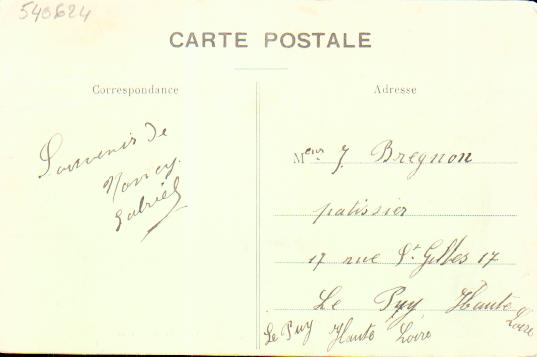 540624
CARTE POSTALE
Correspondance
Adresse
Souvenir de
Nancy.
Gabriel
Meur. J Bregnon
patissier
17 rue St. Gilles 17
Le Puy Haute Loire
Le Puy Haute Loire